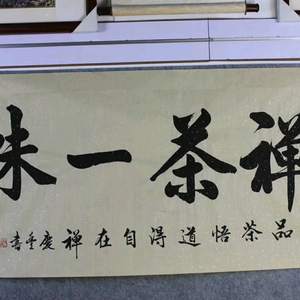 禅茶一味
品茶悟道得自在禅